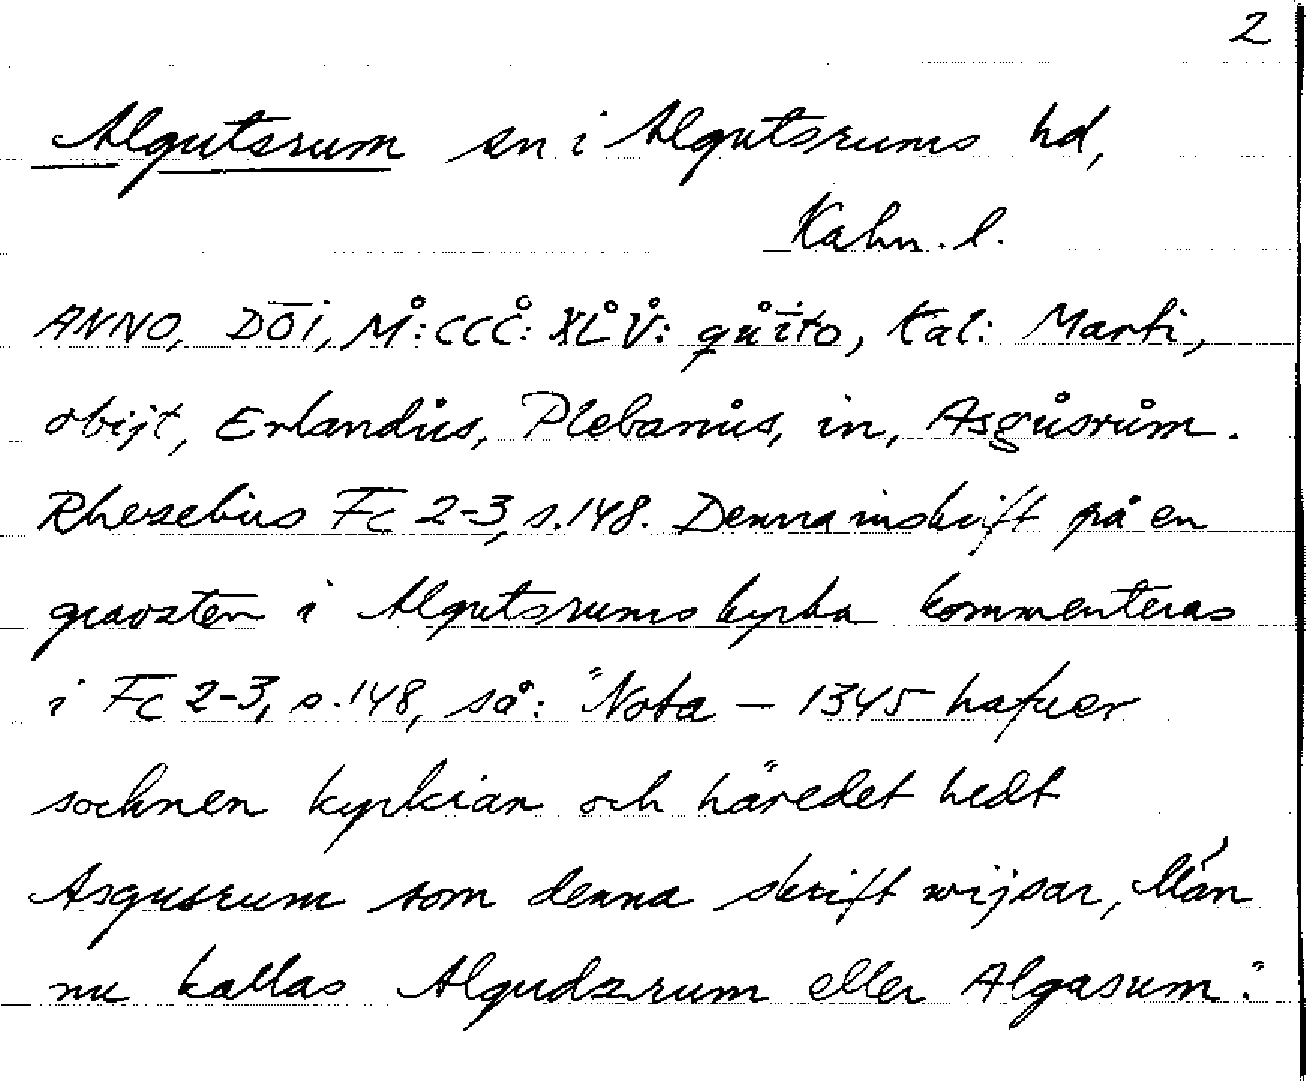 2
Algutsrum sn i Algutsrums hd,
Kalm. l.
ANNO, DŌI, M̊:CCC̊: XL̊V̊: qůīto, Kal: Marti,
obijt, Erlandůs, Plebanůs, in, Asgůsrům.
Rhezelius Fc 2-3, s.148. Denna inskrift på en
gravsten i Algutsrums kyrka kommenteras
i Fc 2-3, s.148, så: "Nota – 1345 hafuer
sochnen kyrkian och häredet hedt
Asgusrum som denna skrift wijsar, Män
nu kallas Algudzrum eller Algasum".